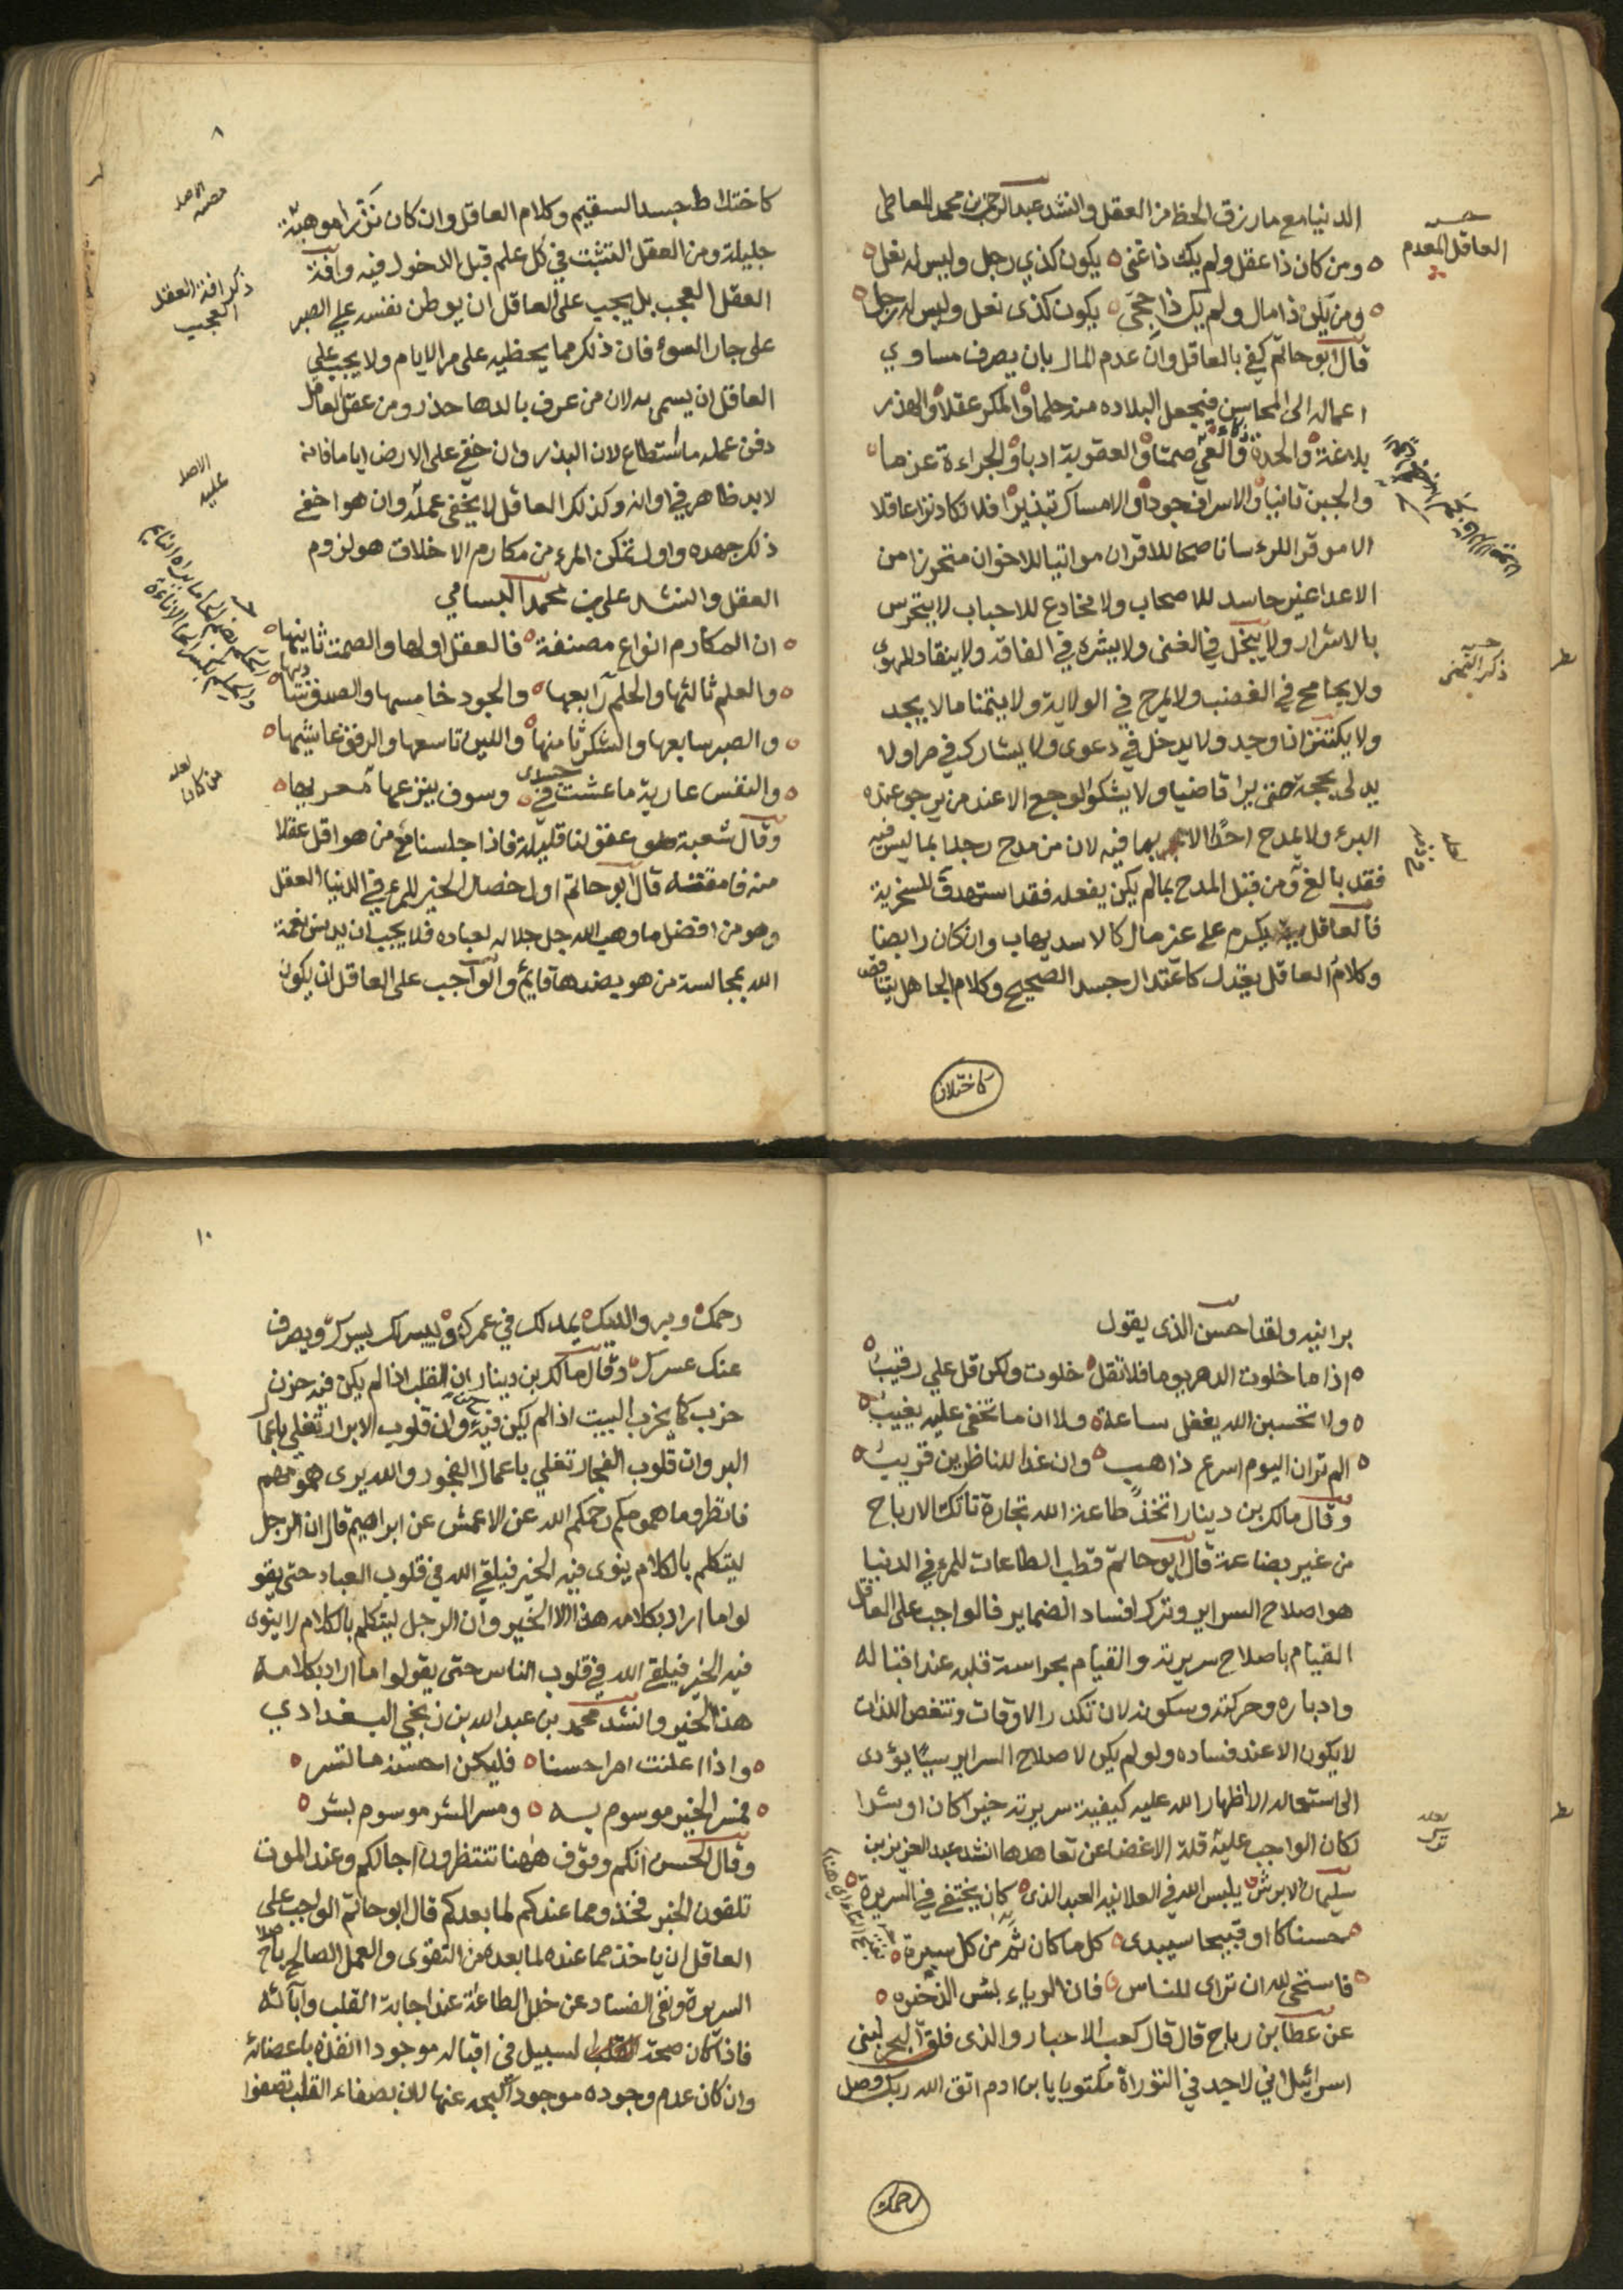 العاقل المعدم
الدنيا مع ما رزق الحظ من العقل وانشد عبد الرحمن بن محمد المعاطى
ومن كان ذا عقل ولم يك ذا غنى يكون كذي رجل وليس له نعل
ومن يكن ذا مال ولم يك ذا حجى يكون كذى نعل وليس له رجل
قال ابو حاتم كفى بالعاقل وان عدم المال بان يصرف مساوي
اعماله الى المحاسن فيجعل البلاده منه حلما والمكر عقلا والهذر
بلاغة والحدة ذكاء والعي صمتا والعقوبة ادبا والجراءة عزما
والجبن تانيا والاسراف جودا والامساك تبذيرا فلا تكاد ترا عاقلا
الا موقرا للرءسا ناصحا للاقران مواتيا للاخوان متحرزا من
الاعدا غير حاسد للاصحاب ولا مخادع للاحباب لا يتحرس
بالاشرار ولا يبخل في الغنى ولا يشره في الفاقه ولا ينقاد للهوى
ذكر التمني
ولا يجامح في الغضب ولا يمرح في الولاية ولا يتمنا ما لا يجد
ولا يكتنز ان وجد ولا يدخل في دعوى ولا يشارك في مرا ولا
يدلى بحجة حتى يرا قاضيا ولا يشكو الوجع الا عند من يرجى عنده
البرء ولا يمدح احدًا الا بما فيه لان من مدح رجلا بما ليس فيه
فقد بالغ ومن قبل المدح بما لم يكن يفعله فقد استهدف للسخرية
فالعاقل يكرم على غير مال كالاسد يهاب وان كان رابضا
وكلام العاقل يعتدل كاعتدال جسد الصحيح وكلام الجاهل يتناقض
كاختلاط
٨
كاختلاط جسد السقيم وكلام العاقل وان كان نزرا موهبة
جليلة ومن العقل التثبت في كل علم قبل الدخول فيه وافة
ذكر افة العقل
العجب
العقل العجب بل يجب على العاقل ان يوطن نفسه علي الصبر
على جار السوء فان ذلك مما يحظيه على مر الايام ولا يجب علي
العاقل ان يسمى به لان من عرف بالدها حذر ومن عقل العاقل
دفن عمله ما استطاع لان البذر وان خفي على الارض اياما فانه
الاصل
عليه
لابد ظاهر في اوانه وكذلك العاقل لا يخفى عمله وان هو اخفى
ذلك جهده واول تمكن المرء من مكارم الاخلاق هو لزوم
العقل وانشد علي بن محمد البسامي
ان المكارم انواع مصنفة فالعقل اولها والصمت ثانيها
والعلم ثالثها والحلم رابعها والجود خامسها والصدق ستاديها
والصبر سابعها والشكر ثامنها واللين تاسعها والرفق عاشيها
والنفس عارية ما عشت في جسدى وسوف ينزعها معريها
لعله
من كان
وقال شعبة عقولنا قليلة فاذا جلسنا مع من هو اقل عقلا
منه فامقته قال ابو حاتم اول خصال الخير للمرء في الدنيا العقل
وهو من افضل ما وهب الله جل جلاله لعباده فلا يجب ان يدنس نعمة
الله بمجالسة من هو بضدها قايم والواجب على العاقل ان يكون
برانيه ولقد احسن الذى يقول
اذا ما خلوت الدهر يوما فلا تقل خلوت ولكن قل علي رقيب
ولا تحسبن الله يغفل ساعة ولا ان ما تخفى عليه يغيب
الم تر ان اليوم اسرع ذاهب وان غدا للناظرين قريب
وقال مالك بن دينار اتخذ طاعة الله تجارة تاتك الارباح
من غير بضاعة قال ابو حاتم قطب الطاعات للمرء في الدنيا
هو اصلاح السراير وترك افساد الضماير فالواجب على العاقل
القيام باصلاح سريرته والقيام بحراسة قلبه عند اقباله
وادباره وحركته وسكونه لان تكدر الاوقات وتنغص اللذات
لا يكون الا عند فساده ولو لم يكن لاصلاح السراير سببًا يؤدى
الى استعماله الا اظهار الله عليه كيفية سريرته خيرا كان او شرا
لكان الواجب عليه قلة الاغضا عن تعاهدها انشد عبد العزيز بن
سليمان الابرش يلبس الله في العلانيه العبد الذى كان يختفى في السريرة
حسنا كان او قبيحا سيبدى كل ما كان ثم من كل سيرة
فاستحى لله ان تراى للناس فان الرياء بئس الذخيره
عن عطا بن رباح قال قال كعب الاحبار والذى فلق البحر لبنى
اسرائيل اني لاجد في التوراة مكتوبا يا بن ادم اتق الله ربك وصل
رحمك
١٠
رحمك وبر والديك يمد لك في عمرك وييسر لك يسرك ويصرف
عنك عسرك وقال مالك بن دينار ان القلب اذا لم يكن فيه حزن
خرب كما يخرب البيت اذا لم يكن فيه وان قلوب الابرار تغلي باعمال
البر وان قلوب الفجار تغلي باعمال الفجور والله يرى همومهم
فانظروا ما همومكم رحمكم الله عن الاعمش عن ابراهيم قال ان الرجل
ليتكلم بالكلام ينوى فيه الخير فيلقي الله في قلوب العباد حتى يقو
لوا ما اراد بكلامه هذا الا الخير وان الرجل ليتكلم بالكلام لا ينوى
فيه الخير فيلقى الله في قلوب الناس حتى يقولوا ما اراد بكلامه
هذا الخير وانشد محمد بن عبد الله بن زنجي البغدادي
واذا اعلنت امرا حسنا فليكن احسن منه ما تسر
فمسر الخير موسوم به ومسر الشر موسوم بشر
وقال الحسن انكم وقوف ههنا تنتظرون اجالكم وعند الموت
تلقون الخبر فخذوا مما عندكم لما بعدكم قال ابو حاتم الواجب على
العاقل ان ياخذ مما عنده لما بعده من التقوى والعمل الصالح باصلاح
السريرة ونفى الفساد عن خلل الطاعة عند اجابة القلب وابائه
فاذا كان صحة السبيل فى اقباله موجودا انفذه باعضائه
وان كان عدم وجوده موجودا كبحه عنها لان بصفاء القلب تصفوا